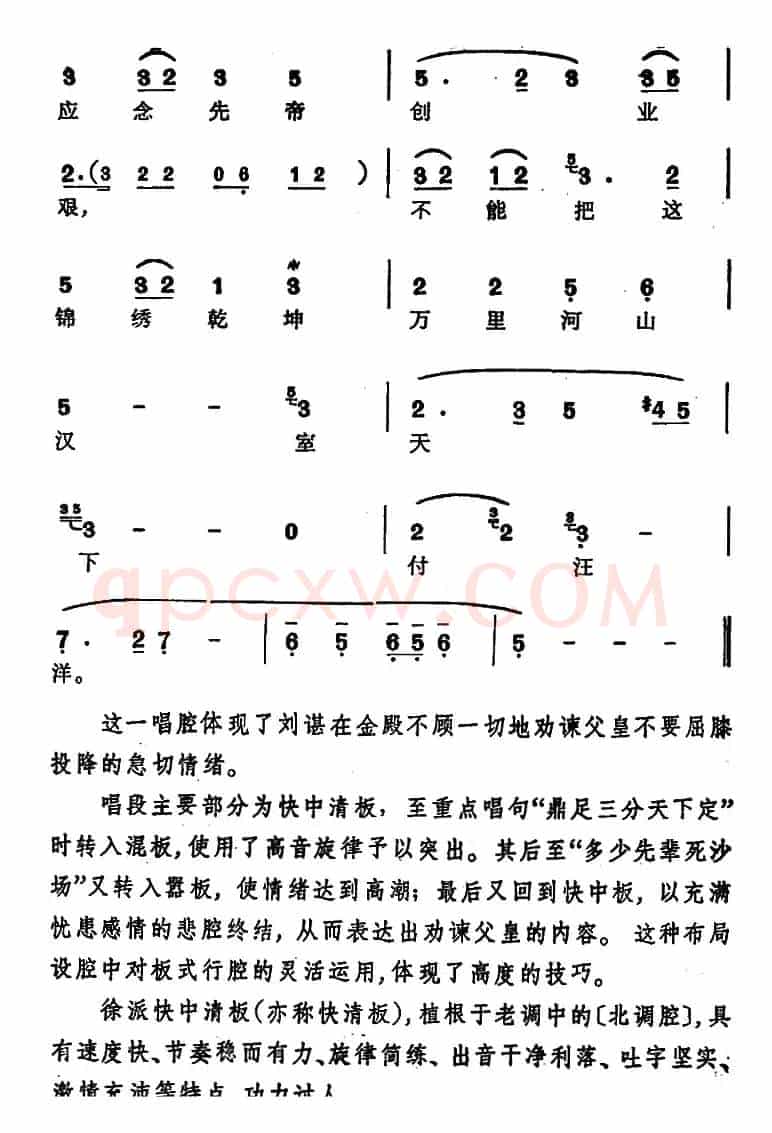 3 3 2 3 5 | 5 . 2 3 3 5 |
应 念 先 帝 创 业
2 . ( 3 2 2 0 6 1 2 ) | 3 2 1 2 5 3 . 2 |
艰， 不 能 把 这
5 3 2 1 3 | 2 2 5 6 |
锦 绣 乾 坤 万 里 河 山
5 - - 5 3 | 2 . 3 5 #4 5 |
汉 室 天
3 5 3 - - 0 | 2 3 2 3 -
下 付 汪
qpcxw.COM
7 . 2 7 - | 6 5 6 5 6 | 5 - - - ‖
洋。
这一唱腔体现了刘谌在金殿不顾一切地劝谏父皇不要屈膝
投降的急切情绪。
唱段主要部分为快中清板，至重点唱句“鼎足三分天下定”
时转入混板，使用了高音旋律予以突出。其后至“多少先辈死沙
场”又转入嚣板，使情绪达到高潮；最后又回到快中板，以充满
忧患感情的悲腔终结，从而表达出劝谏父皇的内容。 这种布局
设腔中对板式行腔的灵活运用，体现了高度的技巧。
徐派快中清板（亦称快清板），植根于老调中的〔北调腔〕，具
有速度快、节奏稳而有力、旋律简练、出音干净利落、吐字坚实、
激情充沛等特点，功力过人